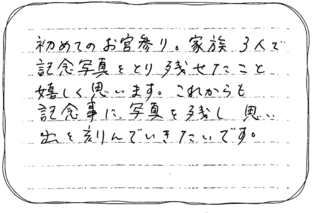 初めてのお宮参り。家族3人で
記念写真をとり残せたこと
嬉しく思います。これからも
記念事に、写真を残し 思い
出を刻んでいきたいです。